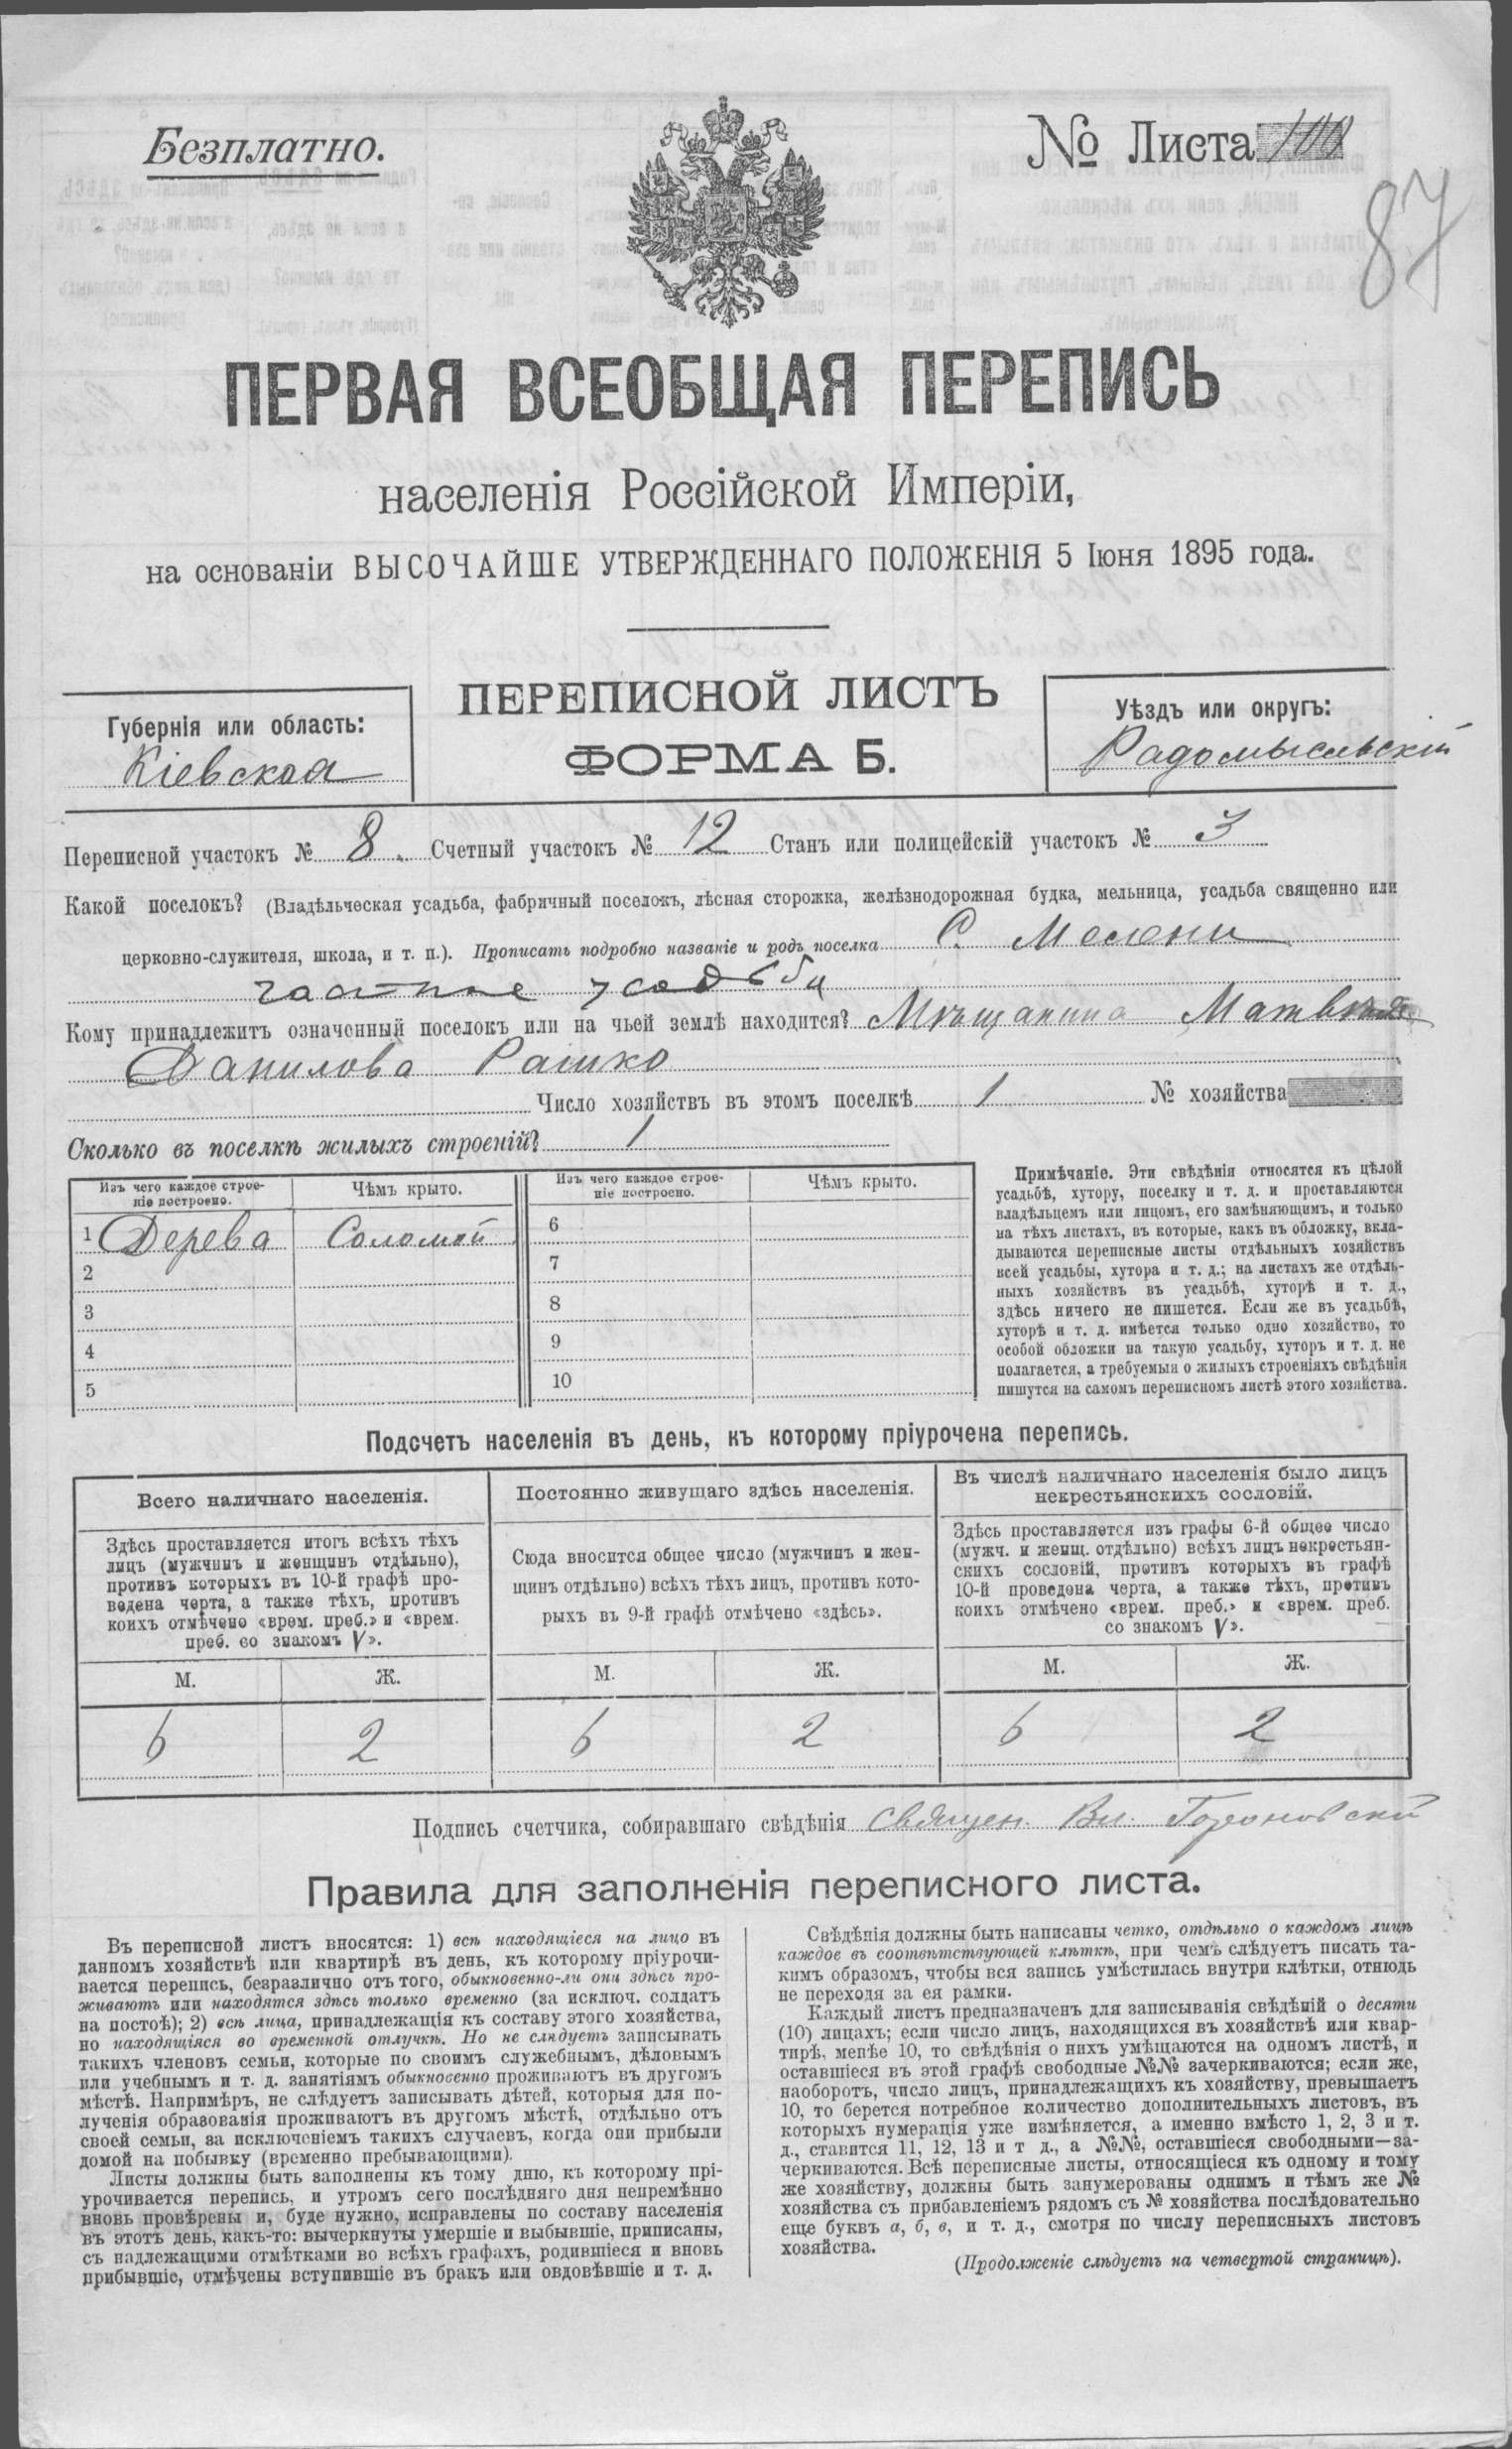 Безплатно.
№ Листа 100
87
ПЕРВАЯ ВСЕОБЩАЯ ПЕРЕПИСЬ
населенія Россійской Имперіи,
на основаніи ВЫСОЧАЙШЕ УТВЕРЖДЕННАГО ПОЛОЖЕНІЯ 5 Іюня 1895 года.
Губернія или область:
Кіевская
ПЕРЕПИСНОЙ ЛИСТЪ
ФОРМА Б.
Уѣздъ или округъ:
Радомысльскій
Переписной участокъ № 8. Счетный участокъ № 12 Станъ или полицейскій участокъ № 3
Какой поселокъ? (Владѣльческая усадьба, фабричный поселокъ, лѣсная сторожка, желѣзнодорожная будка, мельница, усадьба священно или
церковно-служителя, школа, и т. п.). Прописать подробно названіе и родъ поселка С. Мелени
частные усадьбы
Кому принадлежитъ означенный поселокъ или на чьей землѣ находится? Мѣщанина Матвѣя
Данилова Рашко
Число хозяйствъ въ этомъ поселкѣ 1 № хозяйства
Сколько въ поселкѣ жилыхъ строеній? 1
Изъ чего каждое строе-
ніе построено.
Чѣмъ крыто.
Изъ чего каждое строе-
ніе построено.
Чѣмъ крыто.
1 Дерева Соломой 6
2 7
3 8
4 9
5 10
Примѣчаніе. Эти свѣдѣнія относятся къ цѣлой
усадьбѣ, хутору, поселку и т. д. и проставляются
владѣльцемъ или лицомъ, его замѣняющимъ, и только
на тѣхъ листахъ, въ которые, какъ въ обложку, вкла-
дываются переписные листы отдѣльныхъ хозяйствъ
всей усадьбы, хутора и т. д.; на листахъ же отдѣль-
ныхъ хозяйствъ въ усадьбѣ, хуторѣ и т. д.,
здѣсь ничего не пишется. Если же въ усадьбѣ,
хуторѣ и т. д. имѣется только одно хозяйство, то
особой обложки на такую усадьбу, хуторъ и т. д. не
полагается, а требуемыя о жилыхъ строеніяхъ свѣдѣнія
пишутся на самомъ переписномъ листѣ этого хозяйства.
Подсчетъ населенія въ день, къ которому пріурочена перепись.
Всего наличнаго населенія.
Здѣсь проставляется итогъ всѣхъ тѣхъ
лицъ (мужчинъ и женщинъ отдѣльно),
противъ которыхъ въ 10-й графѣ про-
ведена черта, а также тѣхъ, противъ
коихъ отмѣчено «врем. преб.» и «врем.
преб. со знакомъ V».
М. Ж.
6 2
Постоянно живущаго здѣсь населенія.
Сюда вносится общее число (мужчинъ и жен-
щинъ отдѣльно) всѣхъ тѣхъ лицъ, противъ кото-
рыхъ въ 9-й графѣ отмѣчено «здѣсь».
М. Ж.
6 2
Въ числѣ наличнаго населенія было лицъ
некрестьянскихъ сословій.
Здѣсь проставляется изъ графы 6-й общее число
(мужч. и женщ. отдѣльно) всѣхъ лицъ некрестьян-
скихъ сословій, противъ которыхъ въ графѣ
10-й проведена черта, а также тѣхъ, противъ
коихъ отмѣчено «врем. преб.» и «врем. преб.
со знакомъ V».
М. Ж.
6 2
Подпись счетчика, собиравшаго свѣдѣнія Священ. Вл.
Правила для заполненія переписного листа.
Въ переписной листъ вносятся: 1) всѣ находящіеся на лицо въ
данномъ хозяйствѣ или квартирѣ въ день, къ которому пріурочи-
вается перепись, безразлично отъ того, обыкновенно-ли они здѣсь про-
живаютъ или находятся здѣсь только временно (за исключ. солдатъ
на постоѣ); 2) всѣ лица, принадлежащія къ составу этого хозяйства,
но находящіяся во временной отлучкѣ. Но не слѣдуетъ записывать
такихъ членовъ семьи, которые по своимъ служебнымъ, дѣловымъ
или учебнымъ и т. д. занятіямъ обыкновенно проживаютъ въ другомъ
мѣстѣ. Напримѣръ, не слѣдуетъ записывать дѣтей, которыя для по-
лученія образованія проживаютъ въ другомъ мѣстѣ, отдѣльно отъ
своей семьи, за исключеніемъ такихъ случаевъ, когда они прибыли
домой на побывку (временно пребывающими).
Листы должны быть заполнены къ тому дню, къ которому прі-
урочивается перепись, и утромъ сего послѣдняго дня непремѣнно
вновь провѣрены и, буде нужно, исправлены по составу населенія
въ этотъ день, какъ-то: вычеркнуты умершіе и выбывшіе, приписаны,
съ надлежащими отмѣтками во всѣхъ графахъ, родившіеся и вновь
прибывшіе, отмѣчены вступившіе въ бракъ или овдовѣвшіе и т. д.
Свѣдѣнія должны быть написаны четко, отдѣльно о каждомъ лицѣ
каждое въ соотвѣтствующей клѣткѣ, при чемъ слѣдуетъ писать та-
кимъ образомъ, чтобы вся запись умѣстилась внутри клѣтки, отнюдь
не переходя за ея рамки.
Каждый листъ предназначенъ для записыванія свѣдѣній о десяти
(10) лицахъ; если число лицъ, находящихся въ хозяйствѣ или квар-
тирѣ, менѣе 10, то свѣдѣнія о нихъ умѣщаются на одномъ листѣ, и
оставшіеся въ этой графѣ свободные №№ зачеркиваются; если же,
наоборотъ, число лицъ, принадлежащихъ къ хозяйству, превышаетъ
10, то берется потребное количество дополнительныхъ листовъ, въ
которыхъ нумерація уже измѣняется, а именно вмѣсто 1, 2, 3 и т.
д., ставится 11, 12, 13 и т д., а №№, оставшіеся свободными—за-
черкиваются. Всѣ переписные листы, относящіеся къ одному и тому
же хозяйству, должны быть занумерованы однимъ и тѣмъ же №
хозяйства съ прибавленіемъ рядомъ съ № хозяйства послѣдовательно
еще буквъ а, б, в, и т. д., смотря по числу переписныхъ листовъ
хозяйства.
(Продолженіе слѣдуетъ на четвертой страницѣ).